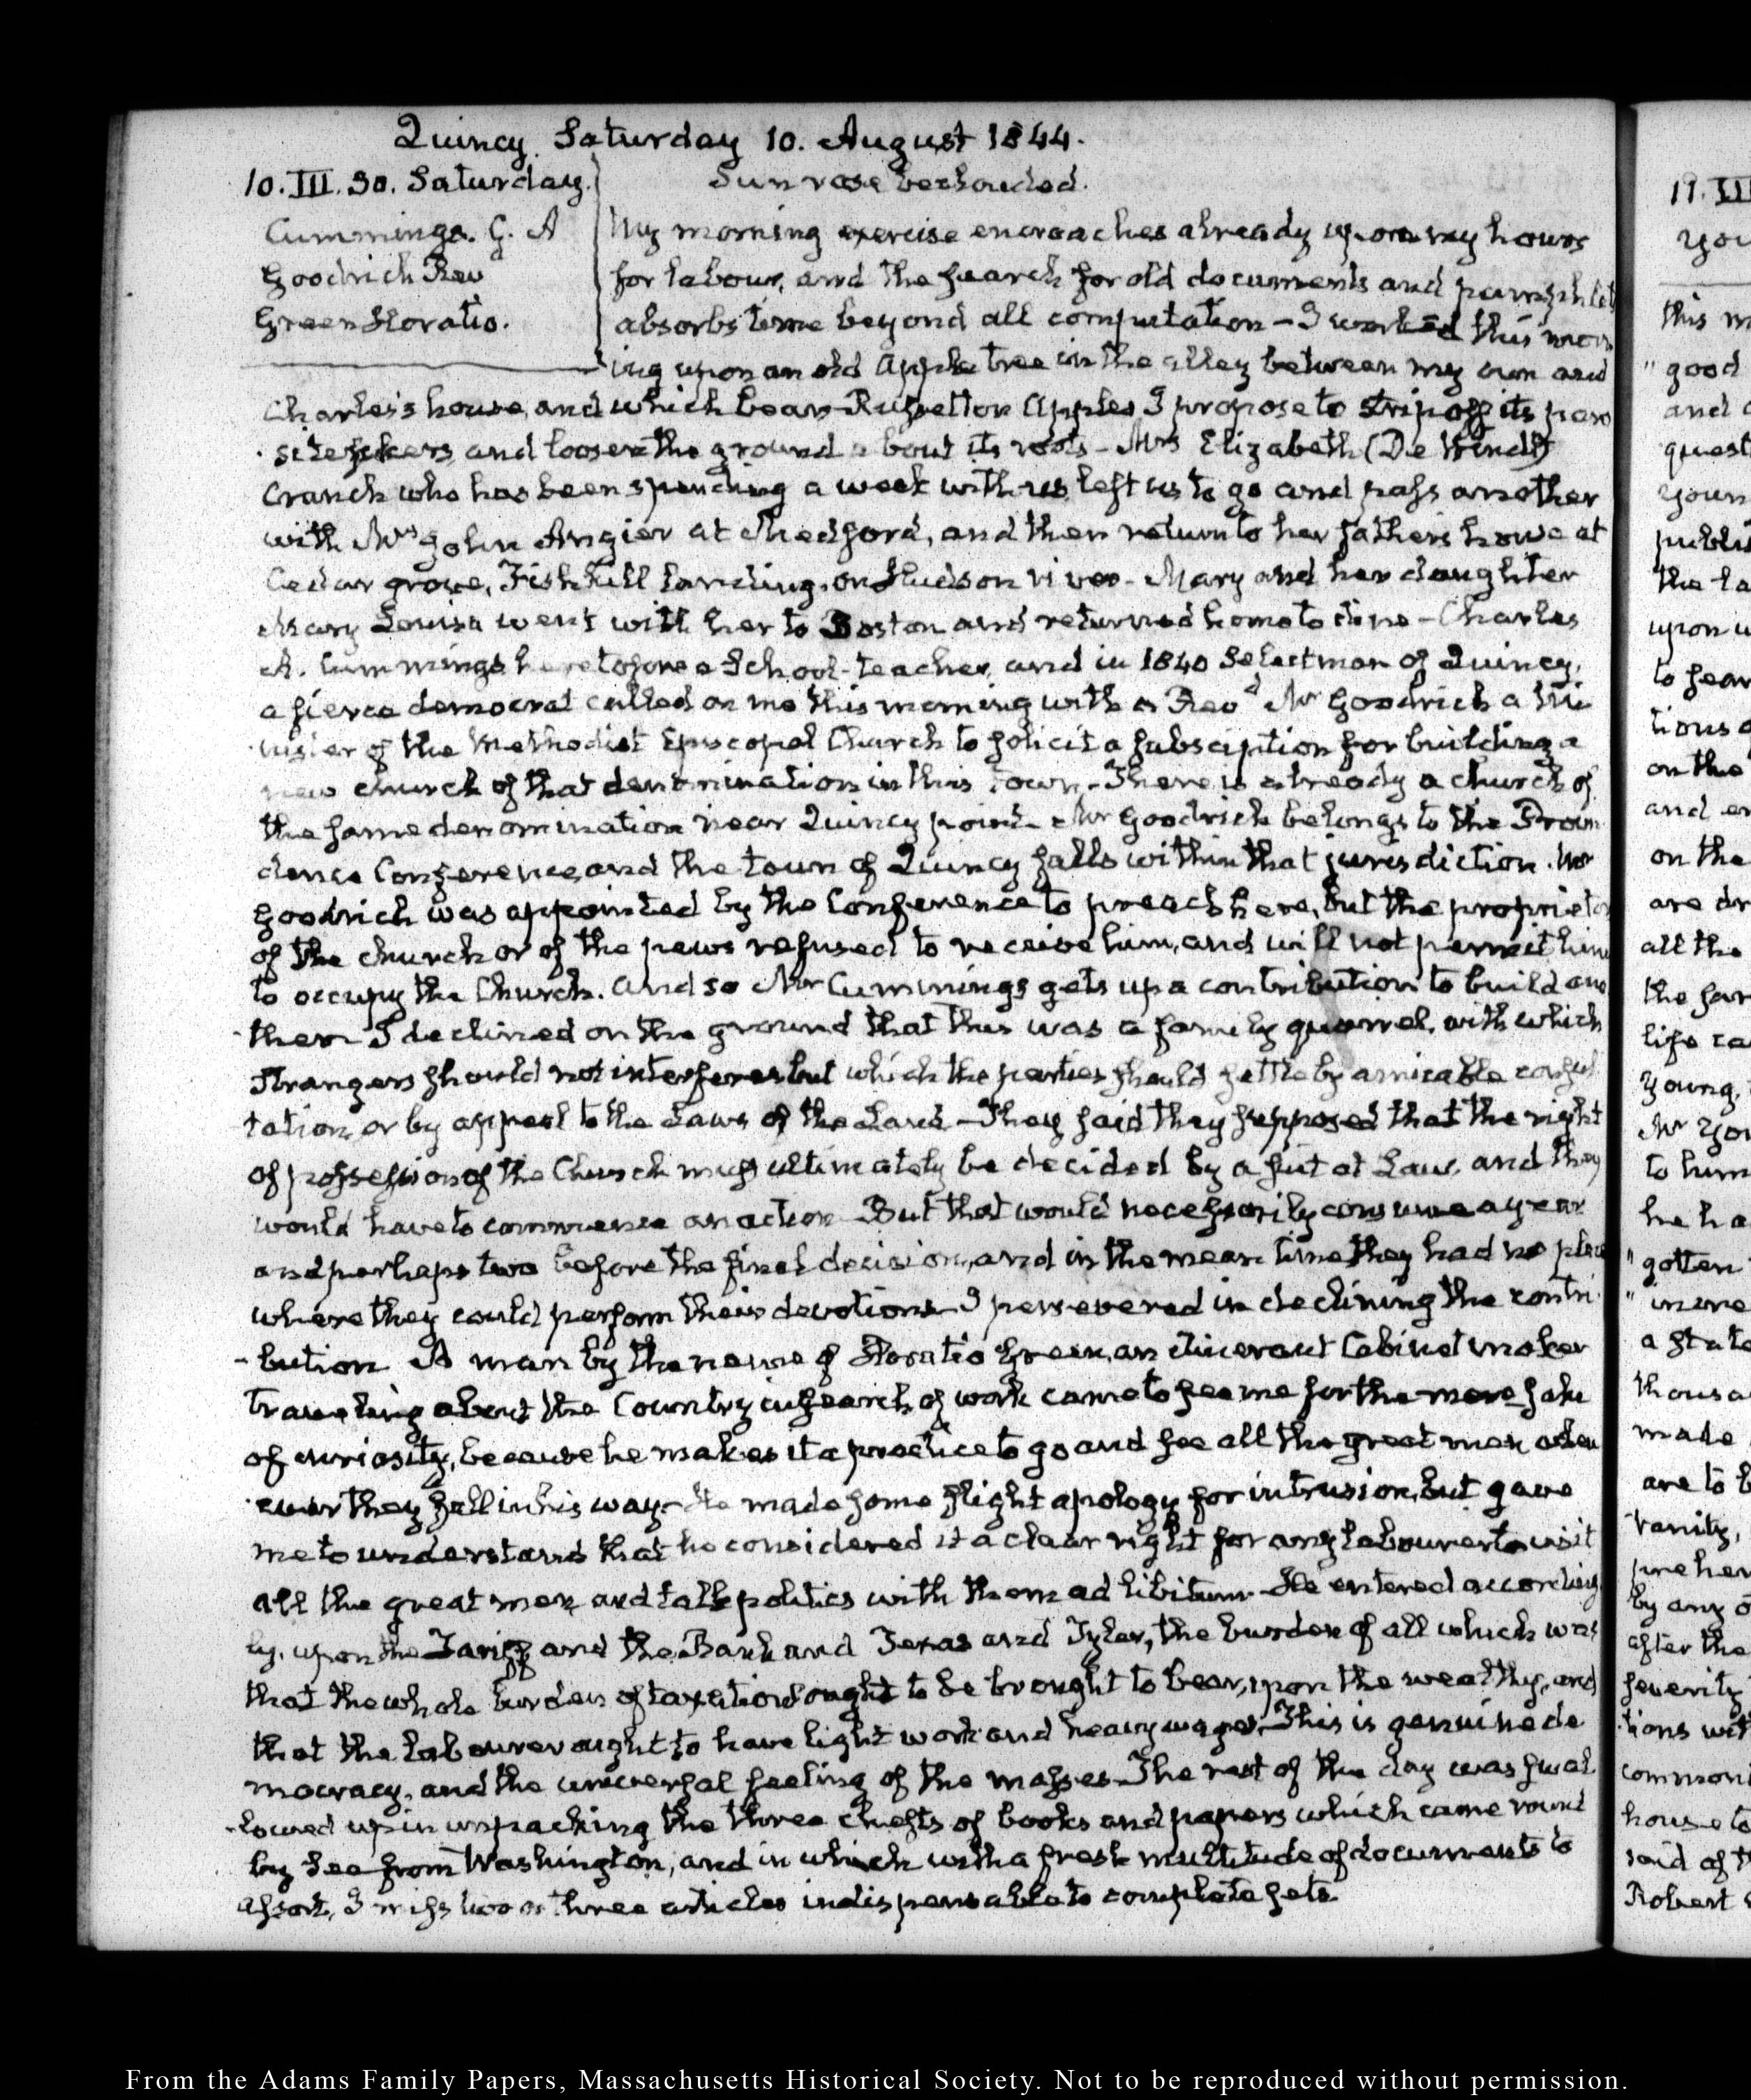 Quincy. Saturday 10. August 1844.
10. III. 30. Saturday. Sun rose beclouded.
Cummings. C. A
Goodrich Rev
Green Horatio.
My morning exercise encroaches already upon my hours
for labour, and the search for old documents and pamphlets
absorbs time beyond all computation – I worked this morn
ing upon an old Apple tree in the alley between my own and
Charles's house, and which bears Russelton Apples I propose to strip off its para
site suckers and loosen the ground about its roots – Mrs Elizabeth (De Windt)
Cranch who has been spending a week with us left us to go and pass another
with Mrs John Angier at Medford, and then return to her fathers house at
Cedar grove, Fishkill landing, on Hudson river – Mary and her daughter
Mary Louisa went with her to Boston and returned home to dine – Charles
A. Cummings heretofore a School-teacher, and in 1840 Selectman of Quincy,
a fierce democrat called on me this morning with a Revd Mr Goodrich a Mi
nister of the Methodist Episcopal Church to solicit a subsciption for building a
new church of that denomination in this Town. – There is already a church of
the same denomination near Quincy point – Mr Goodrich belongs to the Provi
dence Conference and the town of Quincy falls within that jurisdiction. Mr
Goodrich was appointed by the Conference to preach here, but the proprietors
of the church or of the pews refused to receive him, and will not permit him
to occupy the Church. and so Mr Cummings gets up a contribution to build ano
- ther – I declined on the ground that this was a family quarrel, with which
strangers should not interfere but which the parties should settle by amicable consul
tation, or by appeal to the Laws of the Land – They said they supposed that the right
of possession of the Church must ultimately be decided by a suit at Law, and they
would have to commence an action – But that would necessarily consume a year
and perhaps two before the final decision, and in the mean time they had no place
where they could perform their devotions – I persevered in declining the contri
- bution A man by the name of Horatio Green, an itinerant Cabinet maker
Traveling about the Country in search of work came to see me for the mere sake
of curiosity, because he makes it a practice to go and see all the great men when
ever they fall in his way – He made some slight apology for intrusion, but gave
me to understand that he considered it a clear right for any labourer to visit
all the great men, and talk politics with them ad libitum – He entered according
ly, upon the Tariff and the Bank and Texas and Tyler, the burden of all which was
that the whole burden of taxation ought to be brought to bear, upon the wealthy, and
that the labourer ought to have light work and heavy wages. This is genuine de
mocracy, and the universal feeling of the masses – The rest of the day was swal
- lowed up in unpacking the three chests of books and papers which came round
by Sea from Washington, and in which with a fresh multitude of documents to
assort, I miss two or three articles indispensable to complete sets.
11. III
you
this m
" good
and
quest
young
publis
the la
upon u
to hear
tions
on the
and en
on the
are dr
all the
the far
life ca
young,
Mr You
to him
he ha
" gotten
" incre
a state
thousa
made
are to b
vanity,
prehen
by any o
after the
severity
tions wit
common
house to
said of t
Robert
From the Adams Family Papers, Massachusetts Historical Society. Not to be reproduced without permission.